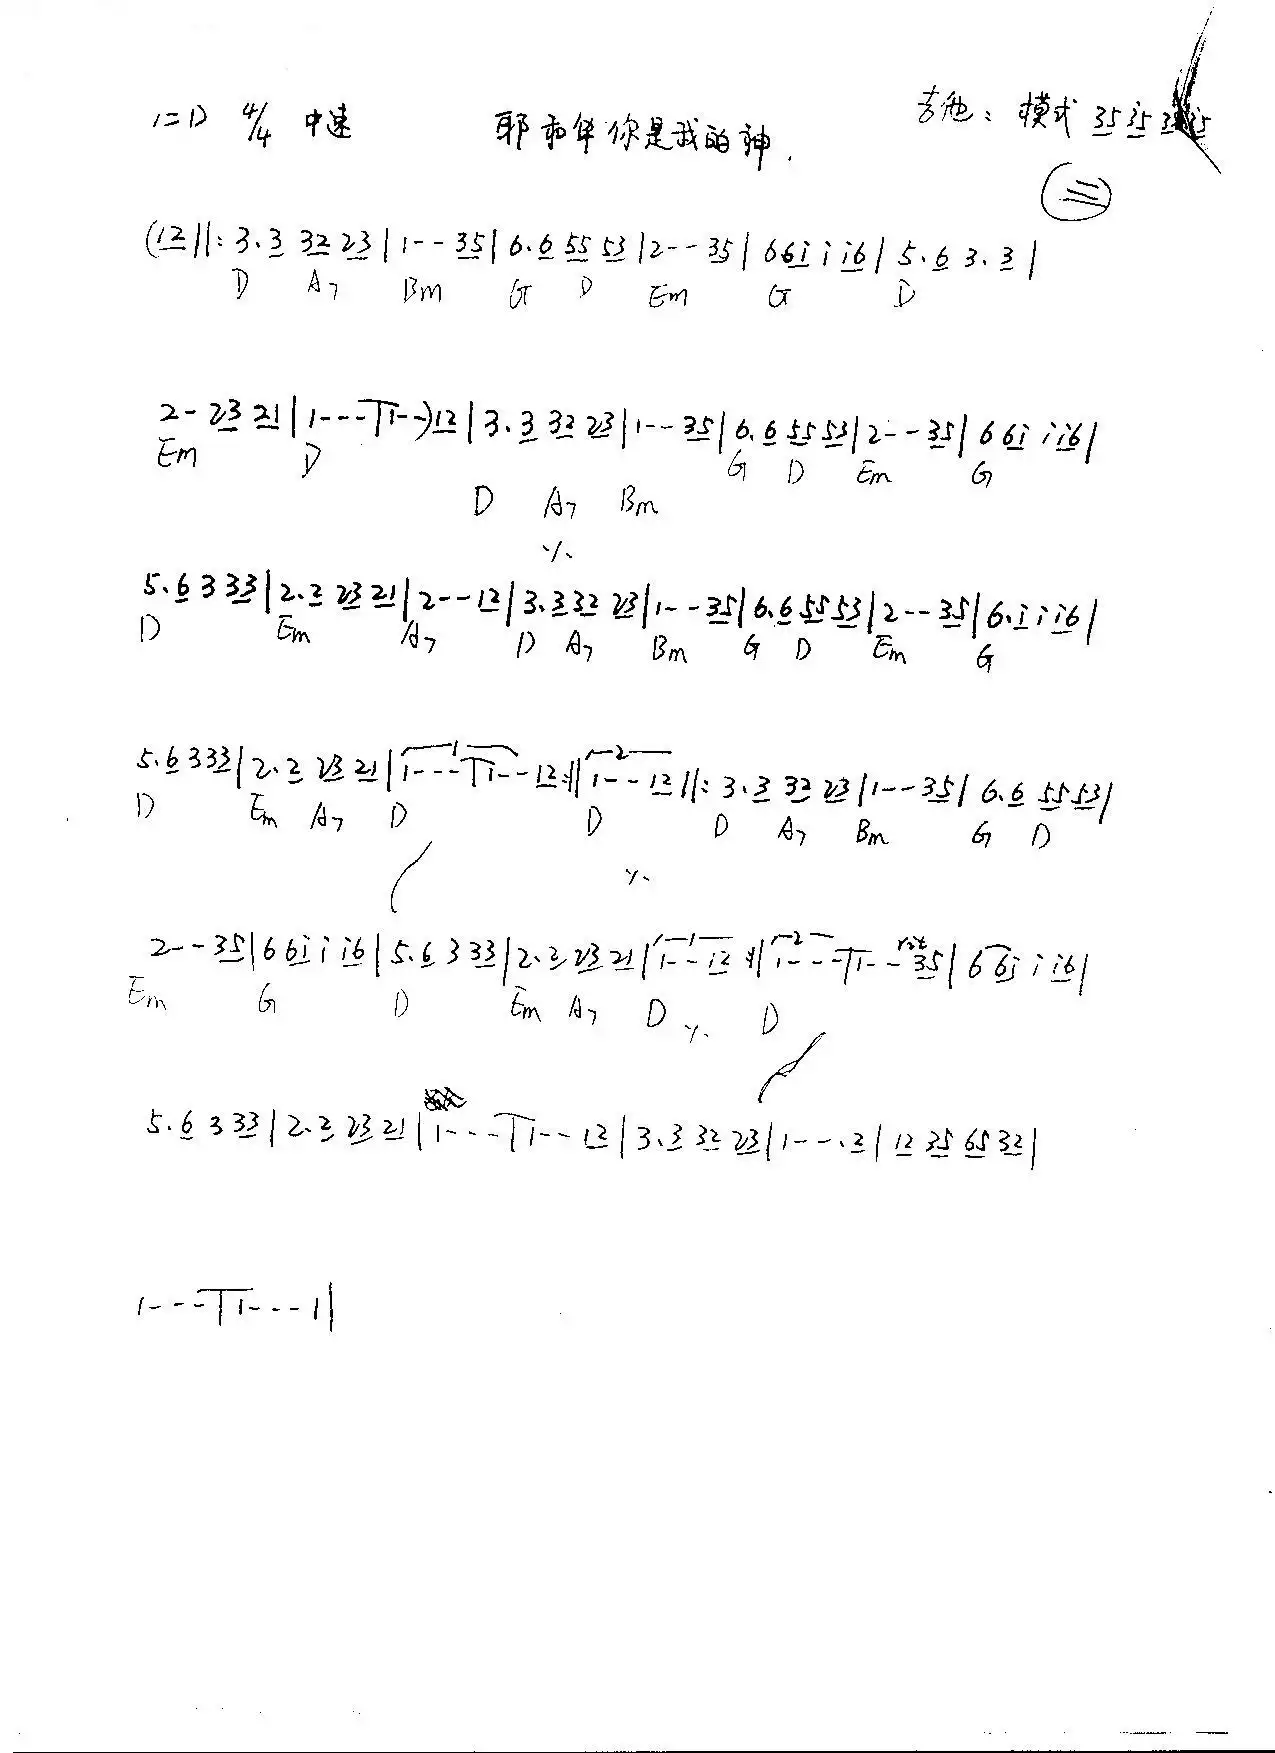 1=D 4/4 中速 耶和华你是我的神. 吉他: 模式
三
(12||: 3.3 32 23 | 1-- 35 | 6.6 55 53 | 2-- 35 | 6 6i i i6 | 5.6 3.3 |
D A7 Bm G D Em G D
2- 23 21 | 1--- | 1--) 12 | 3.3 32 23 | 1-- 35 | 6.6 55 53 | 2-- 35 | 6 6i i i6 |
Em D G D Em G
D A7 Bm
5.6 3 33 | 2.2 23 21 | 2-- 12 | 3.3 32 23 | 1-- 35 | 6.6 55 53 | 2-- 35 | 6.i i i6 |
D Em A7 D A7 Bm G D Em G
1 2
5.6 3 33 | 2.2 23 21 | 1--- | 1-- 12 :|| 1-- 12 ||: 3.3 32 23 | 1-- 35 | 6.6 55 53 |
D Em A7 D D D A7 Bm G D
1 2 rit
2-- 35 | 6 6i i i6 | 5.6 3 33 | 2.2 23 21 | 1-- 12 :|| 1--- | 1-- 35 | 6 6i i i6 |
Em G D Em A7 D D
5.6 3 33 | 2.2 23 21 | 1--- | 1-- 12 | 3.3 32 23 | 1--.2 | 12 35 65 32 |
1--- | 1--- 1 |